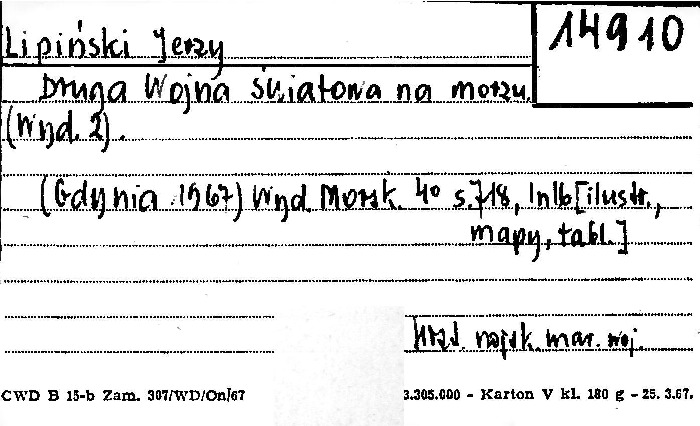 Lipiński Jerzy
14910
Druga Wojna Światowa na morzu.
(Wyd. 2).
(Gdynia 1967) Wyd. Morsk. 4° s. 718, 1nlb [ilustr.,
mapy, tabl.]
mar. woj.
CWD B 15-b Zam. 307/WD/On/67
3.305.000 - Karton V kl. 180 g - 25. 3.67.